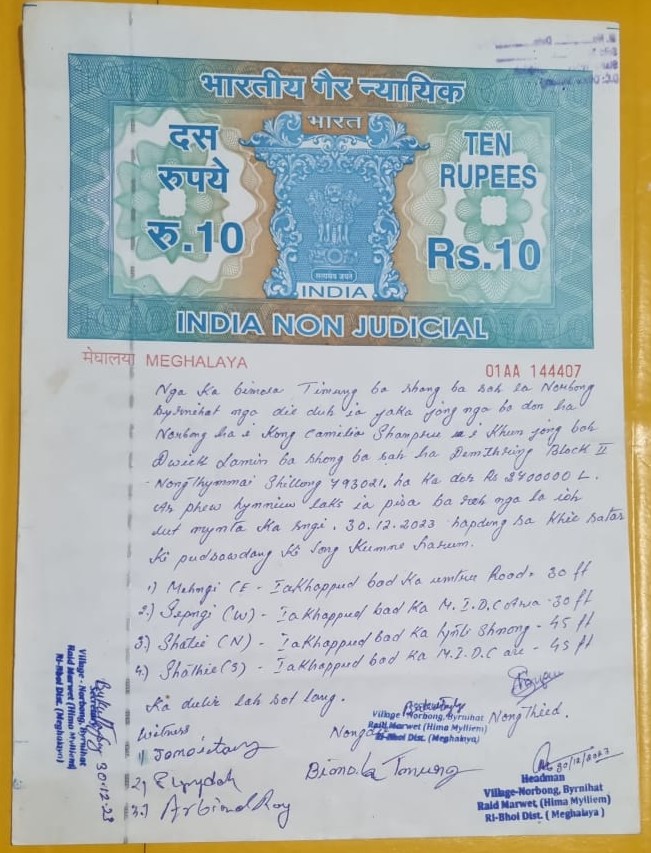 भारतीय गैर न्यायिक
भारत
दस
रुपये
रु.10
TEN
RUPEES
Rs.10
सत्यमेव जयते
INDIA
INDIA NON JUDICIAL
मेघालया MEGHALAYA
01AA 144407
Nga Ka bimola Timung ba shong ba sah la Norbong
Byrnihat nga die duh ia jaka jong nga ba don ha
Norbong ha i Kong Camelia i Khun jong bah
Dwick Lamin ba shong ba sah ha Demthring Block II
Nongthymmai Shillong 793021. ha ka dor Rs 2700000 L.
Ar phew hynniew laks ia pisa ba nga la ioh
lut mynta Ka sngi. 30.12.2023 hapdeng sa Khie
Ki pudsawdang Ki long Kumne harum.
1) Mihngi (E - Iakhappud bad Ka umtru Road - 30 ff
2.) Sepngi (W) - Iakhappud bad Ka M.I.D.C Area - 30 ff
3.) Shatei (N) - Iakhappud bad Ka Shnong - 45 ff
4.) Shathie (S) - Iakhappud bad Ka M.I.D.C - 45 ff
Ka dulir lah sot long.
Witness
1)
2)
3.) Arbind Roy
Bimola Timung
Nong Thied.
Village Norbong, Byrnihat
Raid Marwet (Hima Mylliem)
Ri-Bhoi Dist. (Meghalaya)
30/12/2023
Headman
Village-Norbong, Byrnihat
Raid Marwet, (Hima Mylliem)
Ri-Bhoi Dist. ( Meghalaya )
Village - Norbong, Byrnihat
Raid Marwet (Hima Mylliem)
Ri-Bhoi Dist. (Meghalaya)
30-12-23